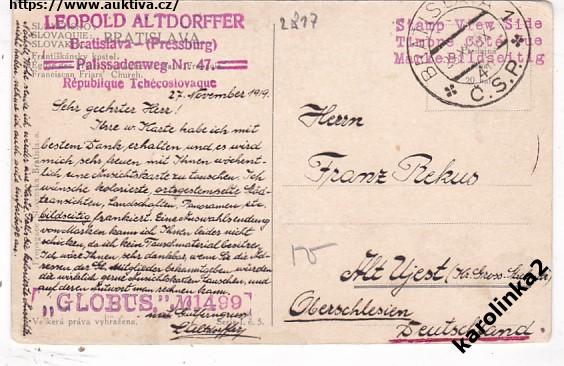 https://www.auktiva.cz/
LEOPOLD ALTDORFFER
BRATISLAVA
Bratislava-(Pressburg)
Palissadenweg Nr. 47.
République Tchécoslovaque
SLOVAQUIE:
Františkánsky kostel.
Franciscan Friars' Church.
2217
Stamp View Side
Timbre Côté vue
Marke Bildseitig
Č.S.P.
27. November 1919.
Sehr geehrter Herr!
Ihre w. Karte habe ich mit
bestem Dank erhalten und es wird
mich sehr freuen mit Ihnen wöchent-
lich eine Ansichtskarte zu tauschen. Ich
wünsche kolorierte, ortsgestempelte Städ-
teansichten, Landschaften, Panoramen etc.
bildseitig frankiert. Eine Auswahlsendung
von Marken kann ich Ihnen leider nicht
schicken, da ich kein Tauschmaterial besitze.
Ich wäre Ihnen sehr dankbar, wenn Sie die Ad-
ressen der Mitglieder bekanntgeben würden
die wirklich gerne Ansichtskarten tauschen, und
auf deren Antwort man rechnen kann.
"GLOBUS" №1499
Altdorffer
Veškerá práva vyhražena.
Serie I. č. 5.
Herrn
Franz Rekus
Alt Ujest
Oberschlesien
Deutschland.
karolinka2